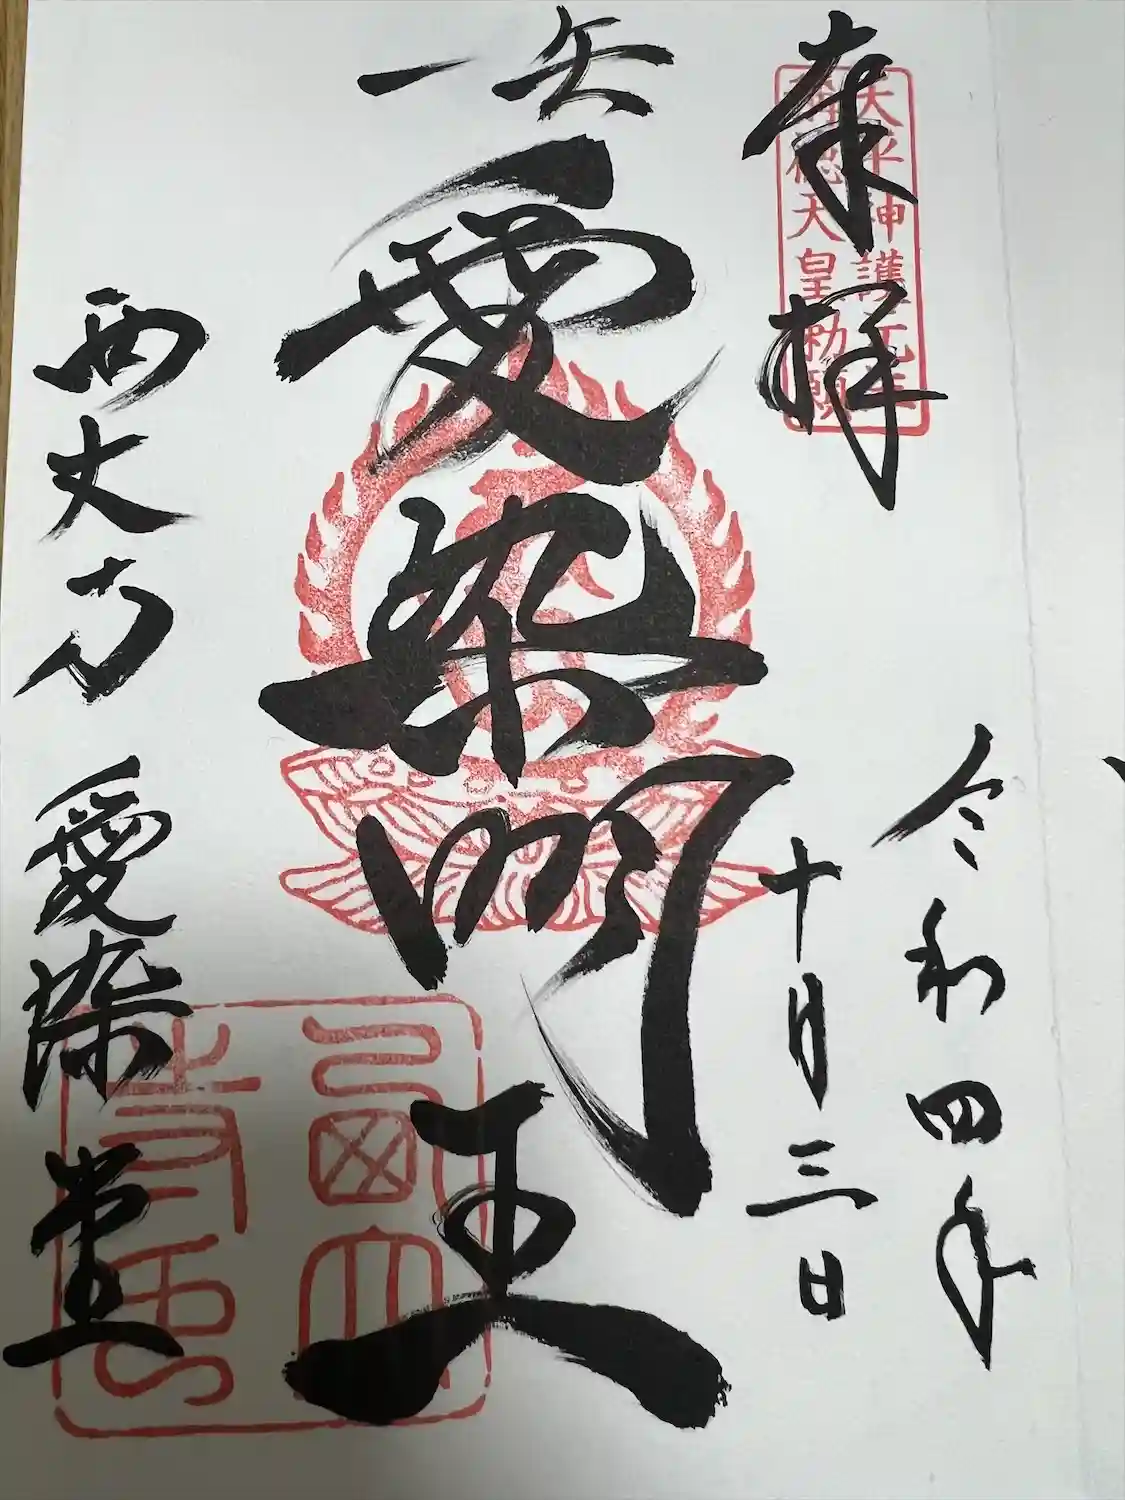 奉拝
天平神護元年
稱徳天皇勅願
令和四年
十月三日
愛染明王
西大寺 愛染堂